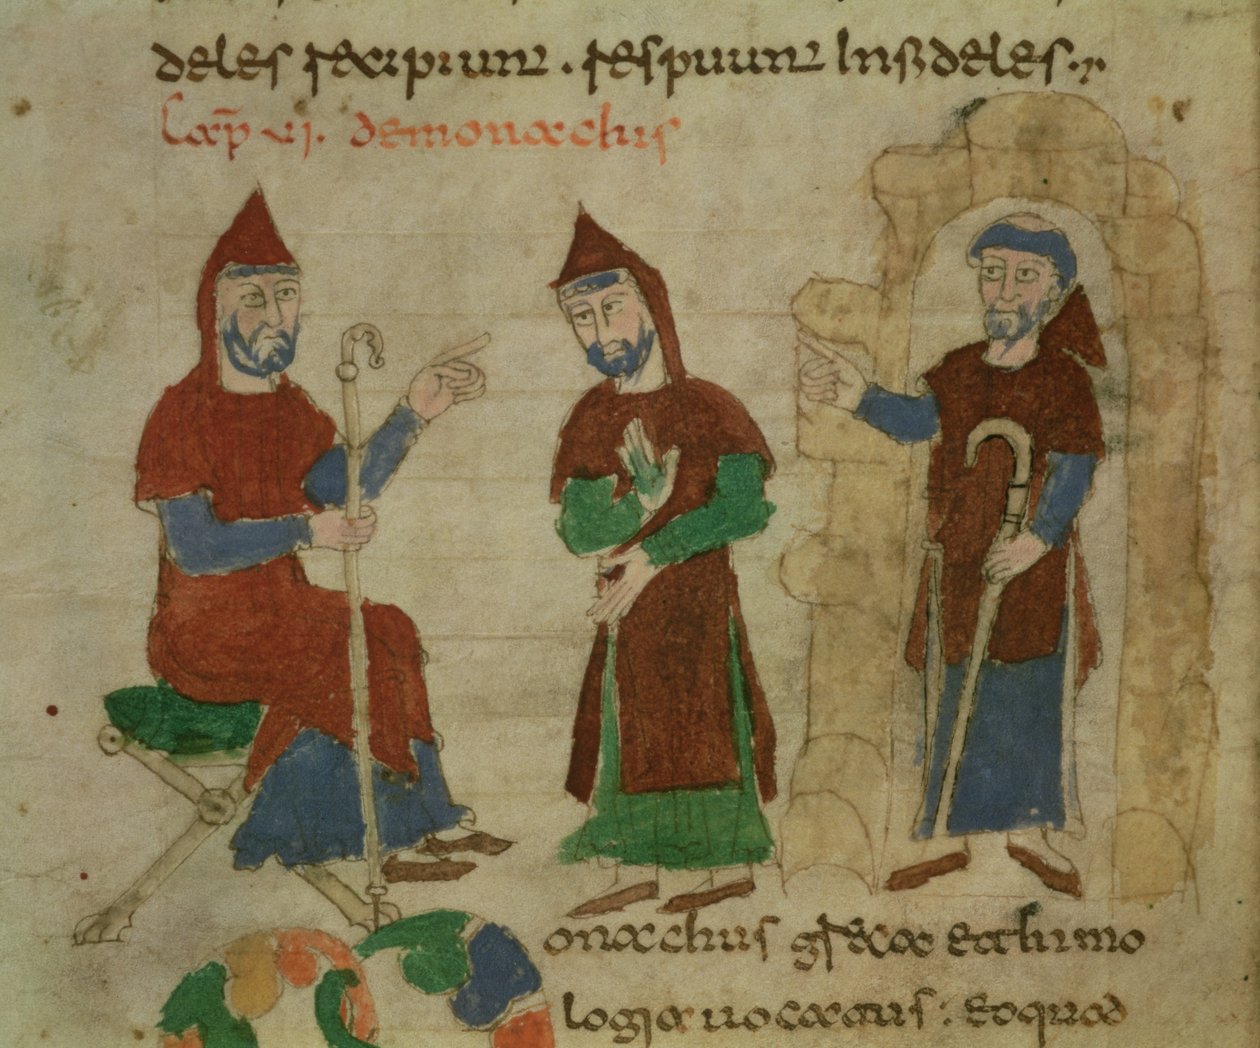 deles recipiunt . respuunt Infideles.
Cap̄ vi. de monachis
onachus greca ethimo
logia uocatus : Eo quod